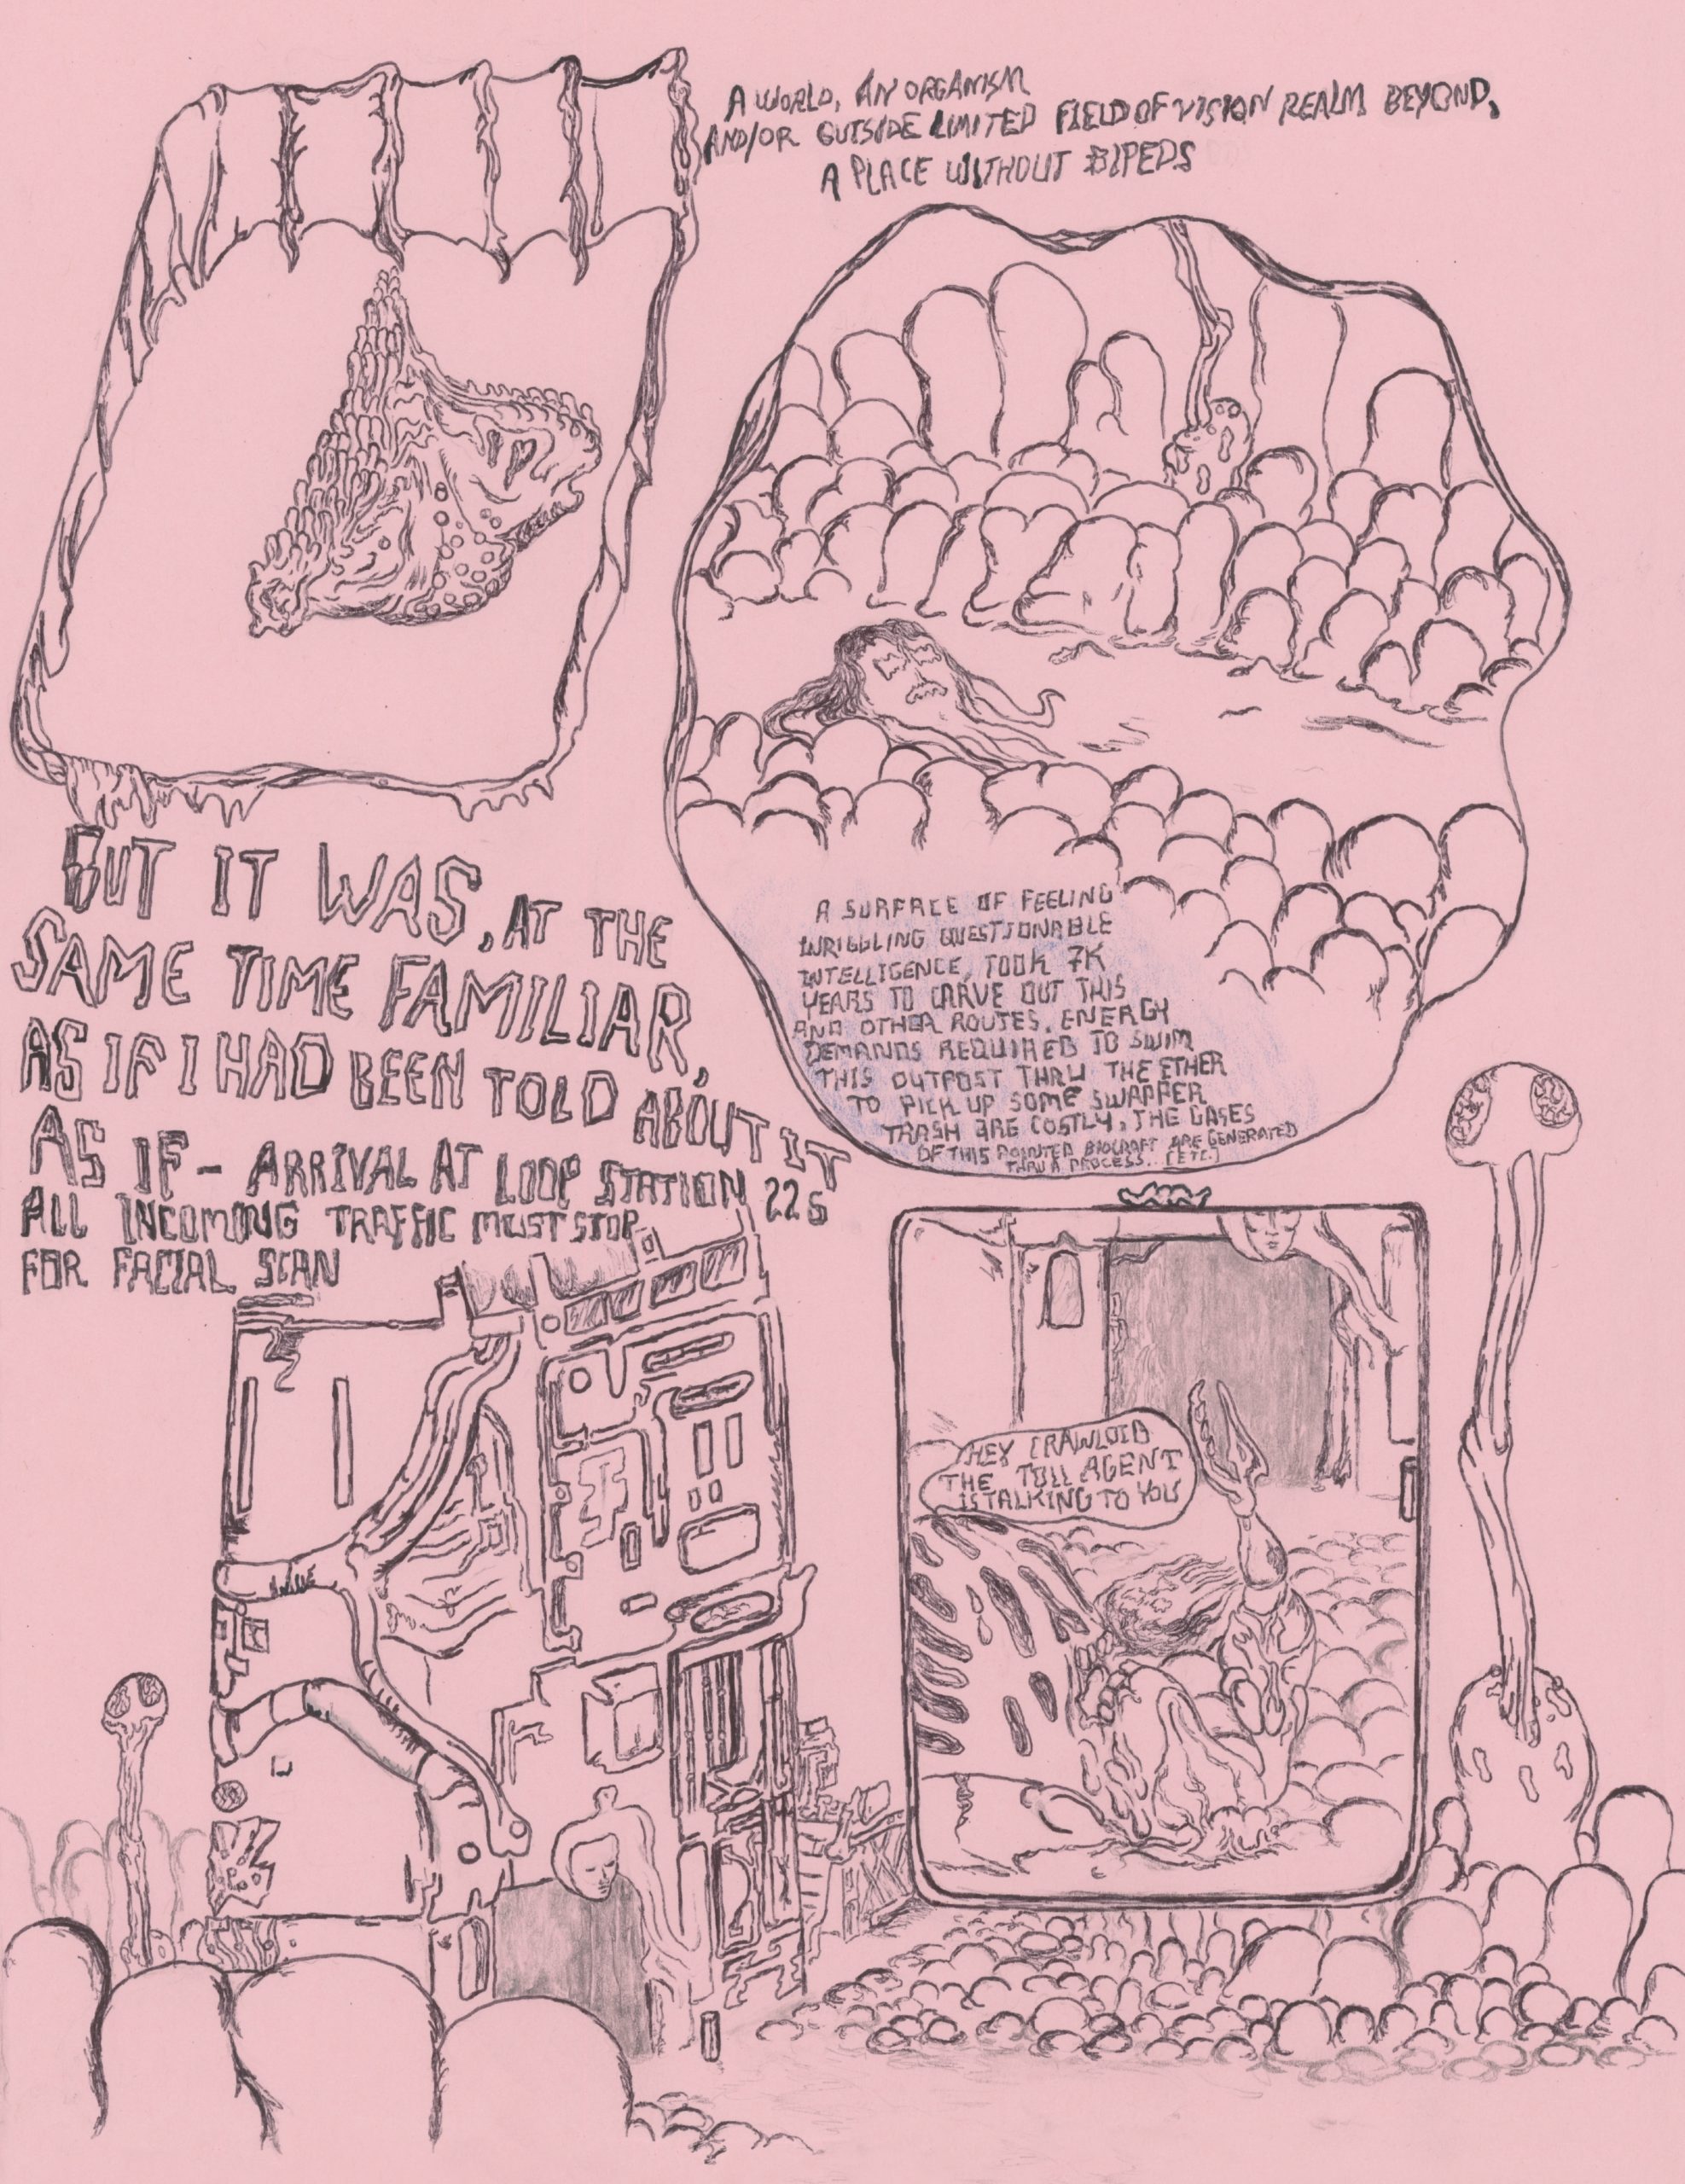 A WORLD, AN ORGANISM
AND/OR OUTSIDE LIMITED FIELD OF VISION REALM BEYOND,
A PLACE WITHOUT BIPEDS
BUT IT WAS, AT THE
SAME TIME FAMILIAR,
AS IF I HAD BEEN TOLD ABOUT IT
AS IF - ARRIVAL AT LOOP STATION 22S
ALL INCOMING TRAFFIC MUST STOP
FOR FACIAL SCAN
A SURFACE OF FEELING
WRIGGLING QUESTIONABLE
INTELLIGENCE, TOOK 7K
YEARS TO CARVE OUT THIS
AND OTHER ROUTES. ENERGY
DEMANDS REQUIRED TO SWIM
THIS OUTPOST THRU THE ETHER
TO PICK UP SOME SWAPPER
TRASH ARE COSTLY, THE GASES
OF THIS POINTED BIOCRAFT ARE GENERATED
THRU A PROCESS... [ETC.]
HEY CRAWLOID
THE TOLL AGENT
IS TALKING TO YOU